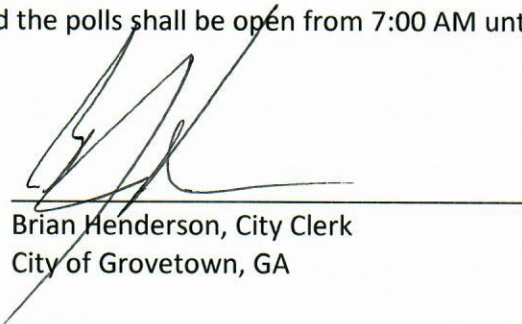 d the polls shall be open from 7:00 AM unt
Brian Henderson, City Clerk
City of Grovetown, GA